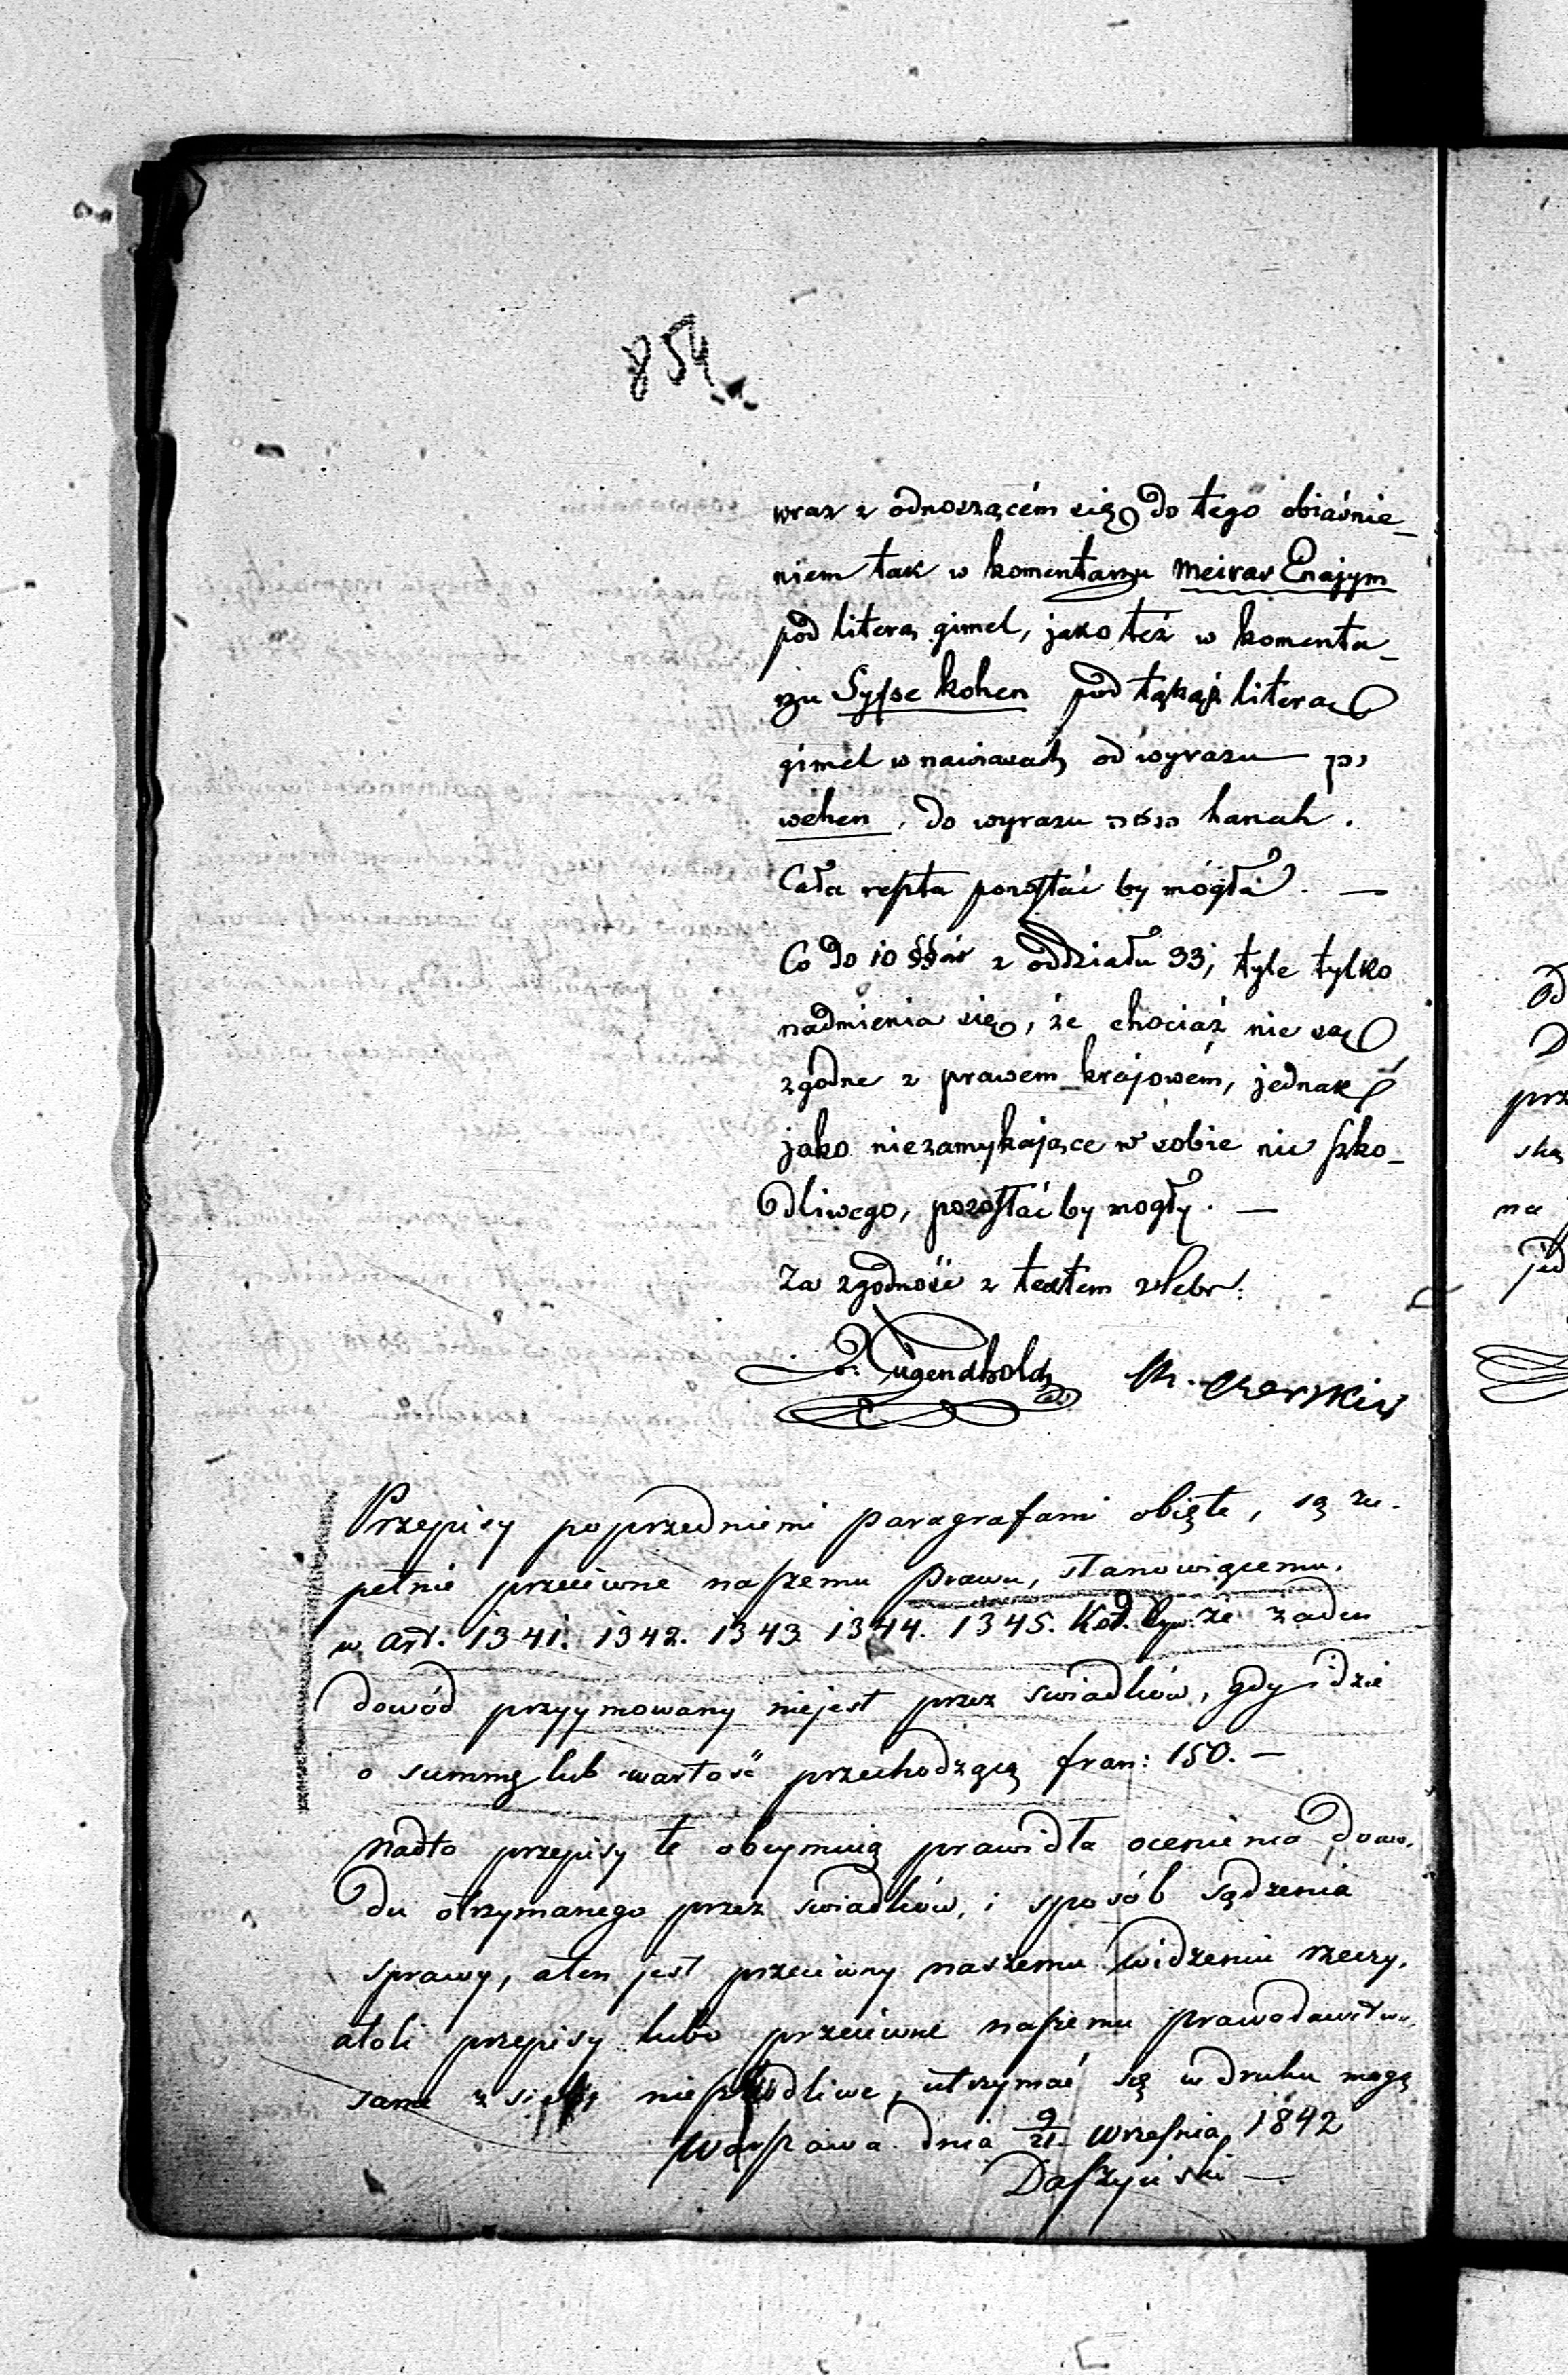 854
wraz z odnoszącém się do tego obiaśnie-
niem tak w komentarzu Meiras Enajym
pod literą gimel, jako też w komenta-
rzu Sypse kohen pod tąkąż literą
gimel w nawiasach od wyrazu וכן
wehen, do wyrazu hanah.
Cała reszta pozostać by mogła. —
Co do 10 §§ów z oddziału 33, tyle tylko
nadmienia się, że chociaż nie są
zgodne z prawem krajowém, jednak
jako niezamykające w sobie nic szko-
dliwego, pozostać by mogły. —
Za zgodność z textem z Hebr:
J. Tugendhold M. Czerskier
Przepisy poprzedniemi paragrafami obięte, są zu-
pełnie przeciwne naszemu prawu, stanowiącemu
w Art. 1341. 1342. 1343. 1344. 1345. Kod. Cyw. że żaden
dowód przyymowany niejest przez swiadków, gdy idzie
o summę lub wartość przechodzącą fran: 150. —
Nadto przepisy te obeymuią prawidła ocenienia dowo-
du otrzymanego przez swiadków, i sposób sądzenia
sprawy, aten jest przeciwny naszemu widzeniu rzeczy,
atoli przepisy lubo przeciwne naszemu prawodawstwu,
same z siebie nieszkodliwe, utrzymać się w druku mogą
Warszawa dnia 9/21 Wrzesnia 1842
Daszyński —